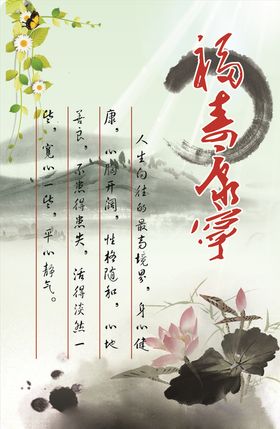 福寿康宁
人生向往的最高境界，身心健
康，心胸开阔，性格随和，心地
善良，不患得患失，活得淡然一
些，宽心一些，平心静气。